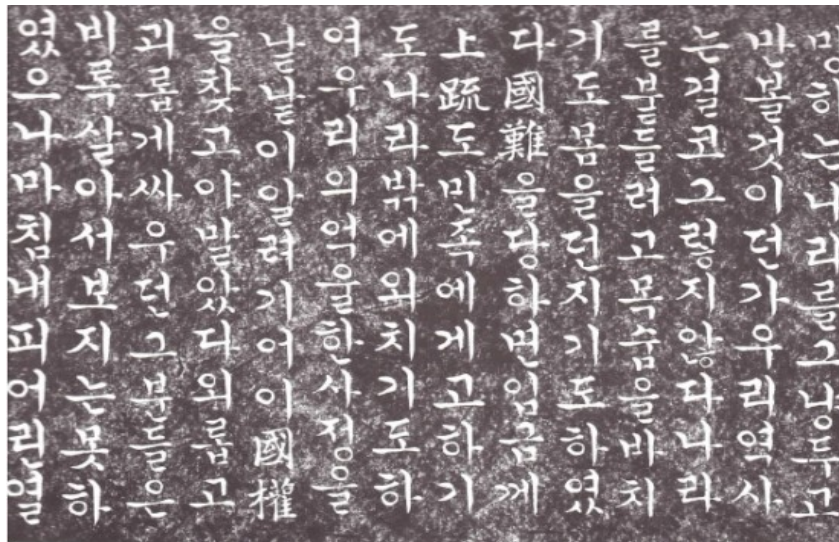 망하는나라를그냥두고
만볼것이던가우리역사
는결코그렇지않다나라
를붙들려고목숨을바치
기도몸을던지기도하였
다國難을당하면임금께
上疏도민족에게고하기
도나라밖에외치기도하
여우리의억울한사정을
낱낱이알려기어이國權
을찾고야말았다외롭고
괴롭게싸우던그분들은
비록살아서보지는못하
였으나마침내피어린열